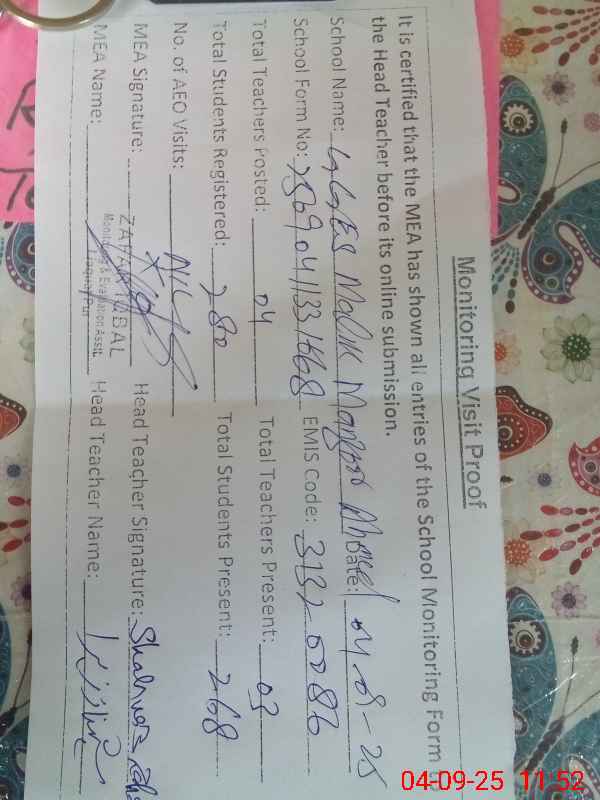 Monitoring Visit Proof
It is certified that the MEA has shown all entries of the School Monitoring Form to
the Head Teacher before its online submission.
School Name: GGES Malik Manzoor Date: 04-09-25
School Form No: EMIS Code: 31320086
Total Teachers Posted: 04 Total Teachers Present: 03
Total Students Registered: 280 Total Students Present: 268
No. of AEO Visits: NIL
MEA Signature: Head Teacher Signature:
ZAFAR IQBAL
Monitoring & Evaluation Assit.
MEA Name: Head Teacher Name:
04-09-25 11:52